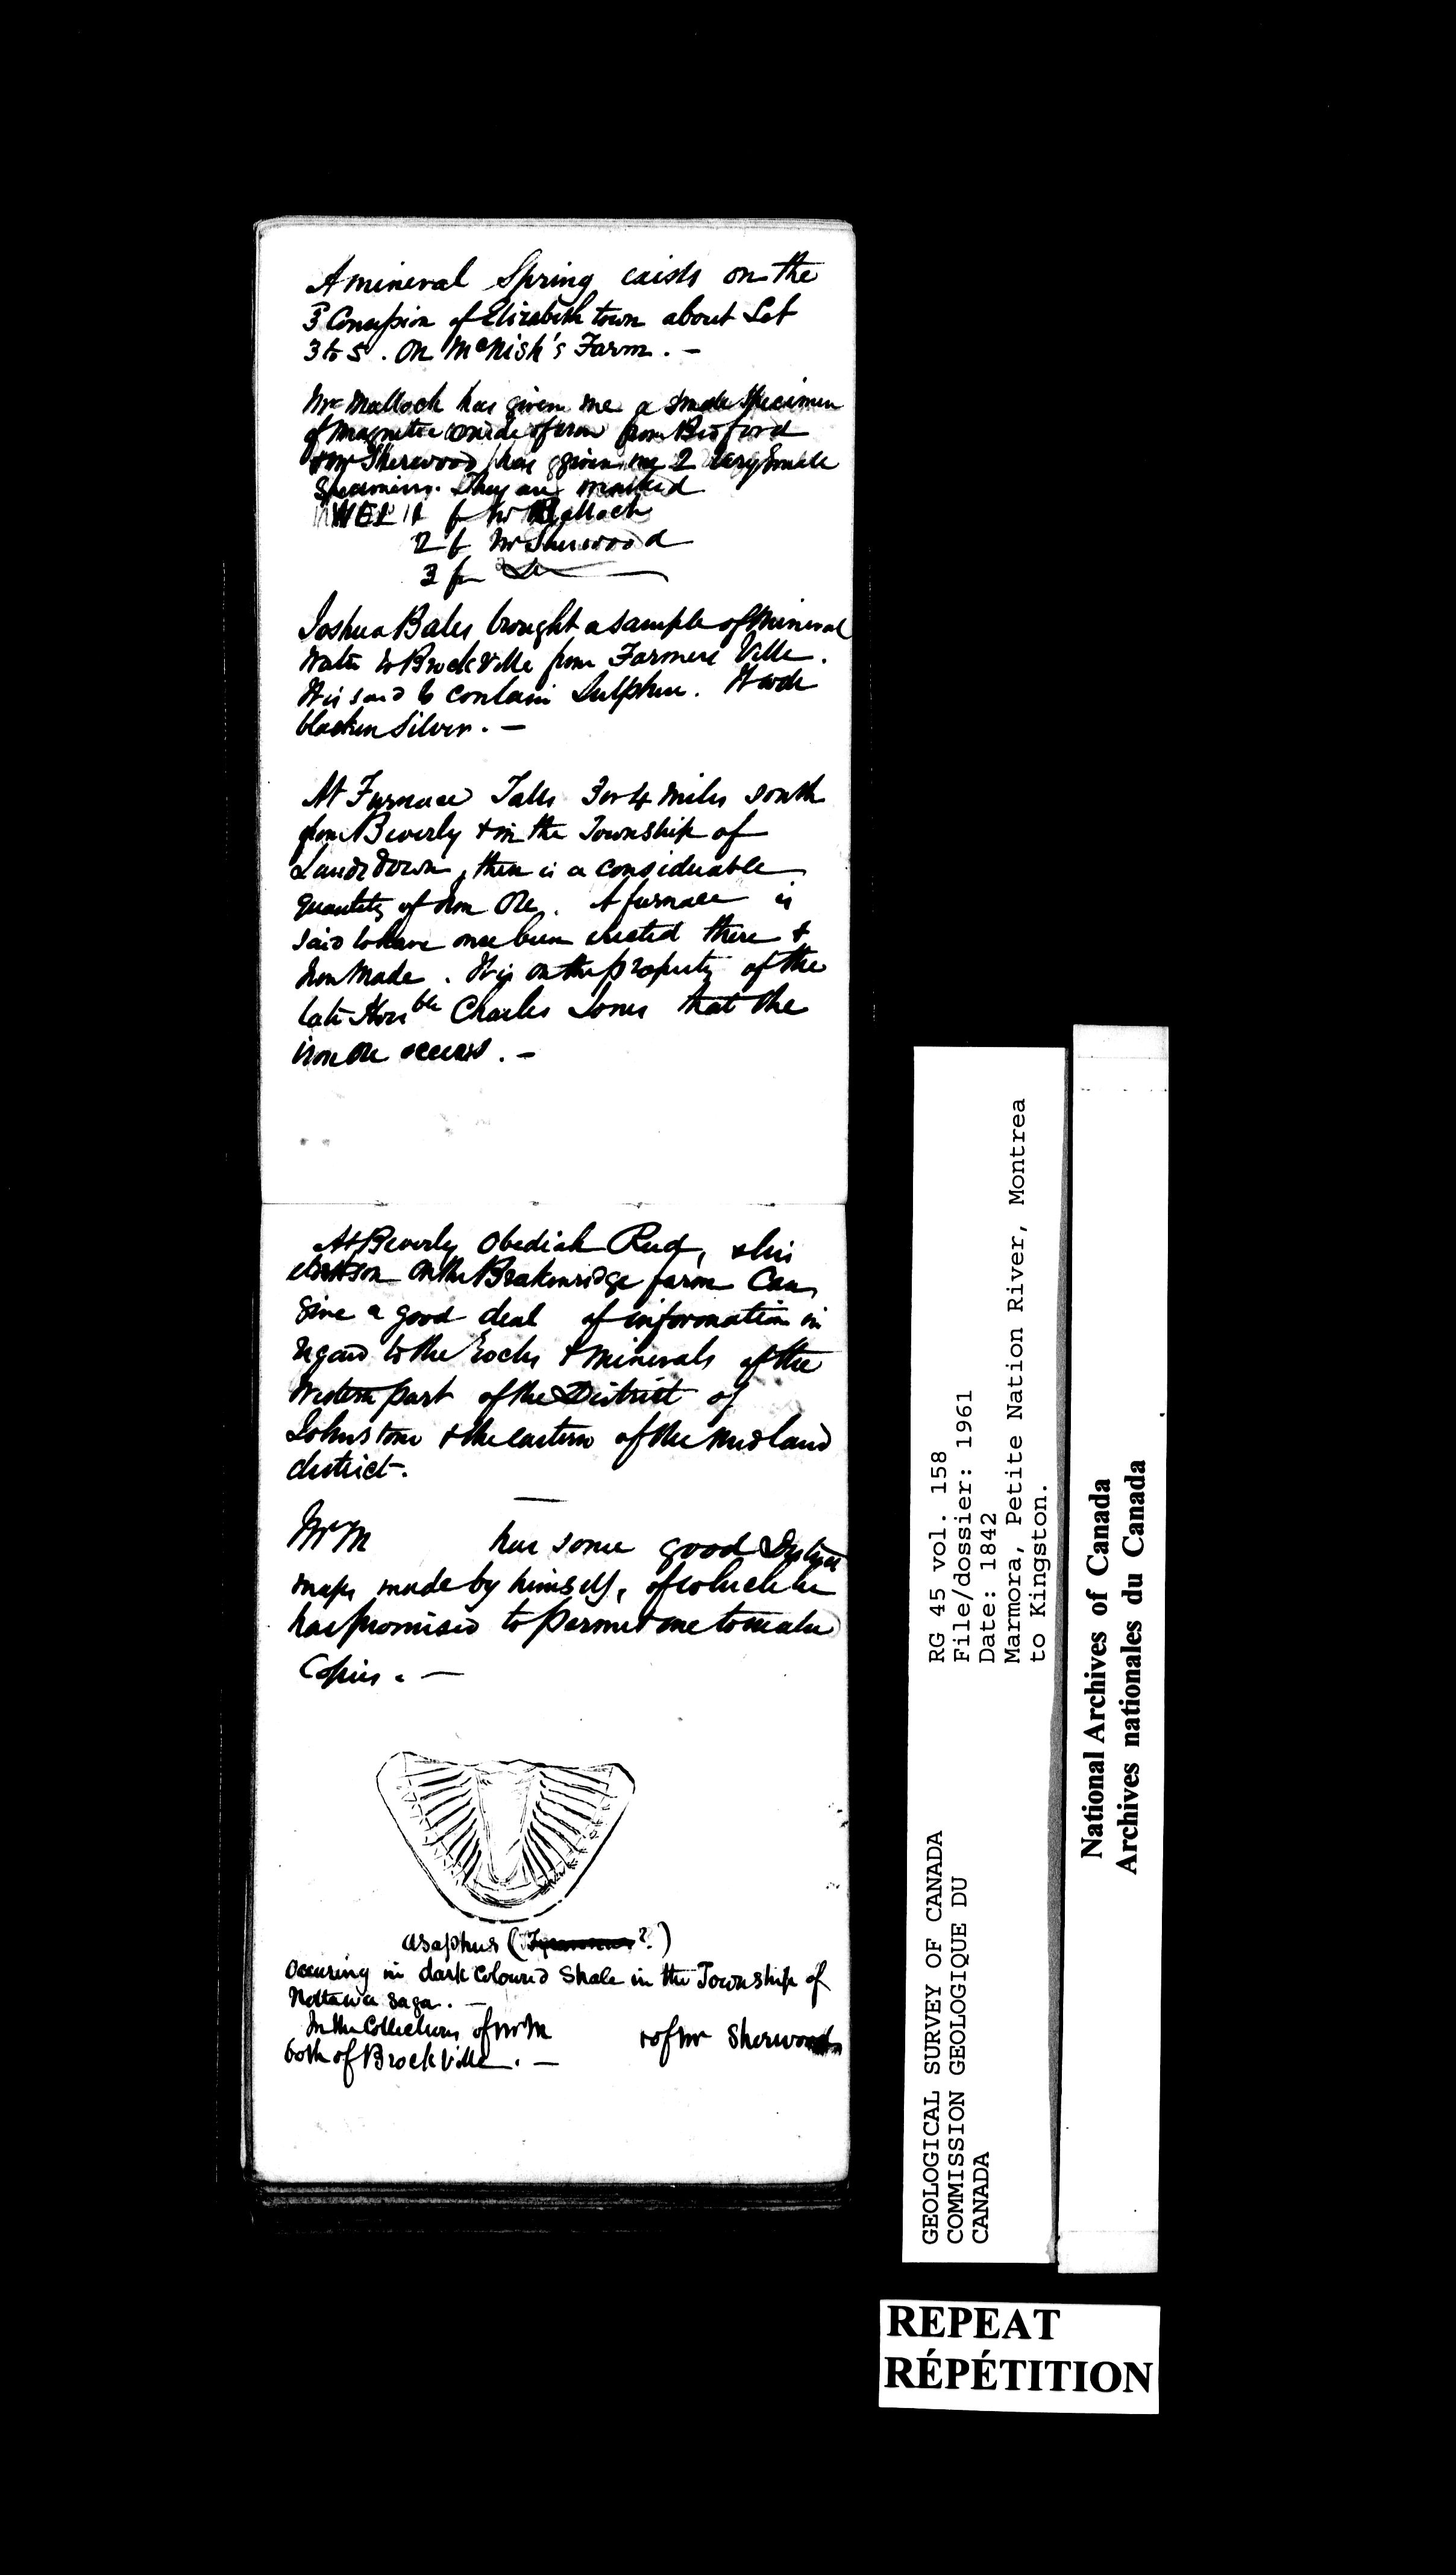 A mineral Spring exists on the
3d Concession of Elizabeth town about Lot
3 to 5. On McNish's Farm. —
Mr Malloch has given me a small specimen
of magnetic oxide of iron from Bedford
& Mr Sherwood has given me 2 very small
specimens. They are marked
WEL 1 f Mr Malloch
2 f Mr Sherwood
3 fm Do
Joshua Bates brought a sample of mineral
water to Brockville from Farmers Ville.
It is said to contain Sulphur. It
blacken silver. —
At Furnace Falls 3 or 4 miles south
from Beverly & in the Township of
Landsdown, there is a considerable
quantity of Iron Ore. A furnace is
said to have once been erected there &
Iron made. It is on the property of the
late Honble Charles Jones that the
iron ore occurs. —
At Beverly Obediah Read, & his
son on the Brakenridge farm Can
give a good deal of information in
regard to the rocks & minerals of the
western part of the District of
Johnstone & the eastern of the Midland
district.
Mr M has some good District
maps made by himself, of which he
has promised to permit me to make
Copies. —
Asaphus ( ?)
Occuring in dark coloured Shale in the Township of
Nottawasaga. —
In the Collections of Mr M & of Mr Sherwood
both of Brockville. —
RG 45 vol. 158
File/dossier: 1961
Date: 1842
Marmora, Petite Nation River, Montrea
to Kingston.
GEOLOGICAL SURVEY OF CANADA
COMMISSION GEOLOGIQUE DU
CANADA
National Archives of Canada
Archives nationales du Canada
REPEAT
RÉPÉTITION